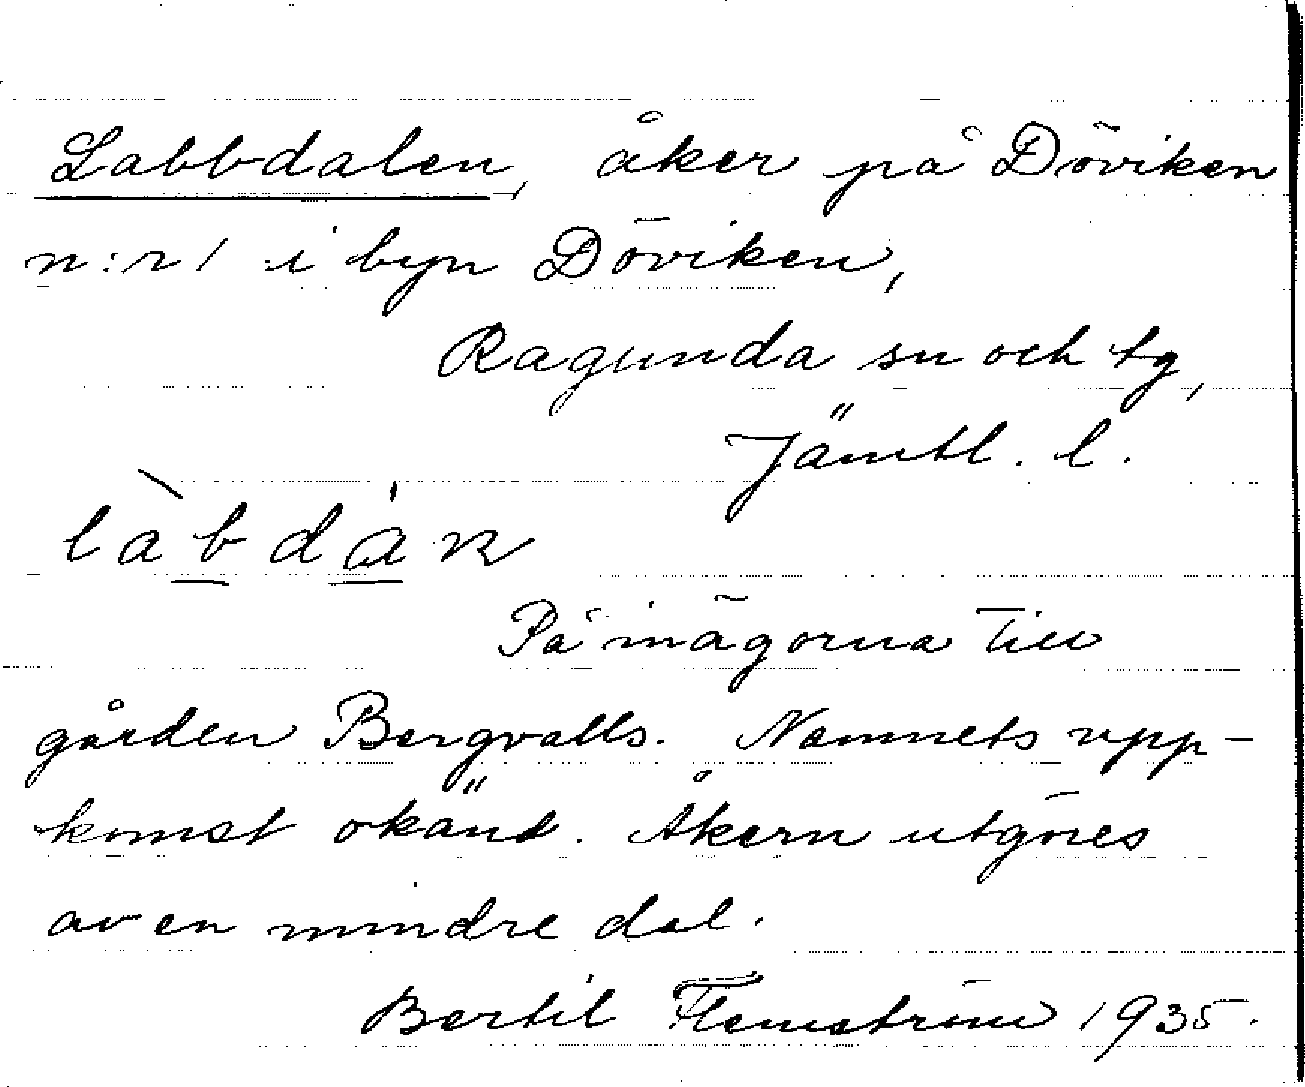 Labbdalen, åker på Döviken
n:r 1 i byn Döviken,
Ragunda sn och tg,
Jämtl. l.
làbdán
På inägorna till
gården Bergvalls. Namnets upp-
komst okänd. Åkern utgöres
av en mindre dal.
Bertil Flemström 1935.